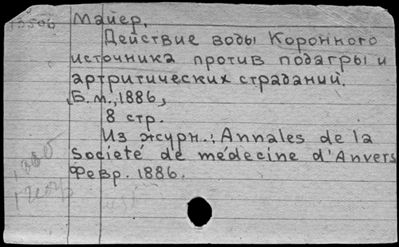 Майер.
Действие воды Коронного
источника против подагры и
артритических страданий.
Б.м., 1886,
8 стр.
Из журн.: Annales de la
Societé de médecine d'Anvers
Февр. 1886.